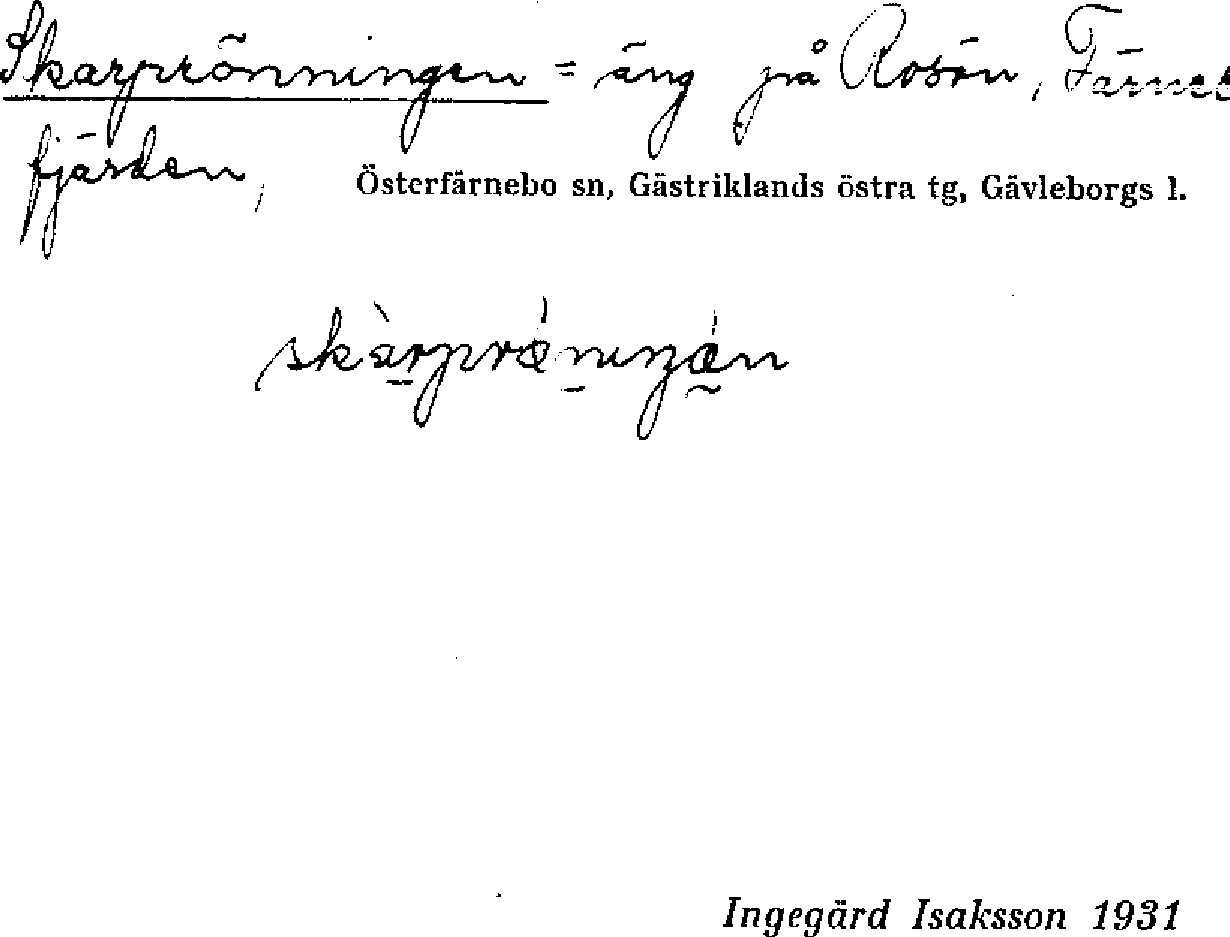 Skarprönningen = äng på Rosön, Färneb
fjärden,
Österfärnebo sn, Gästriklands östra tg, Gävleborgs l.
Ingegärd Isaksson 1931